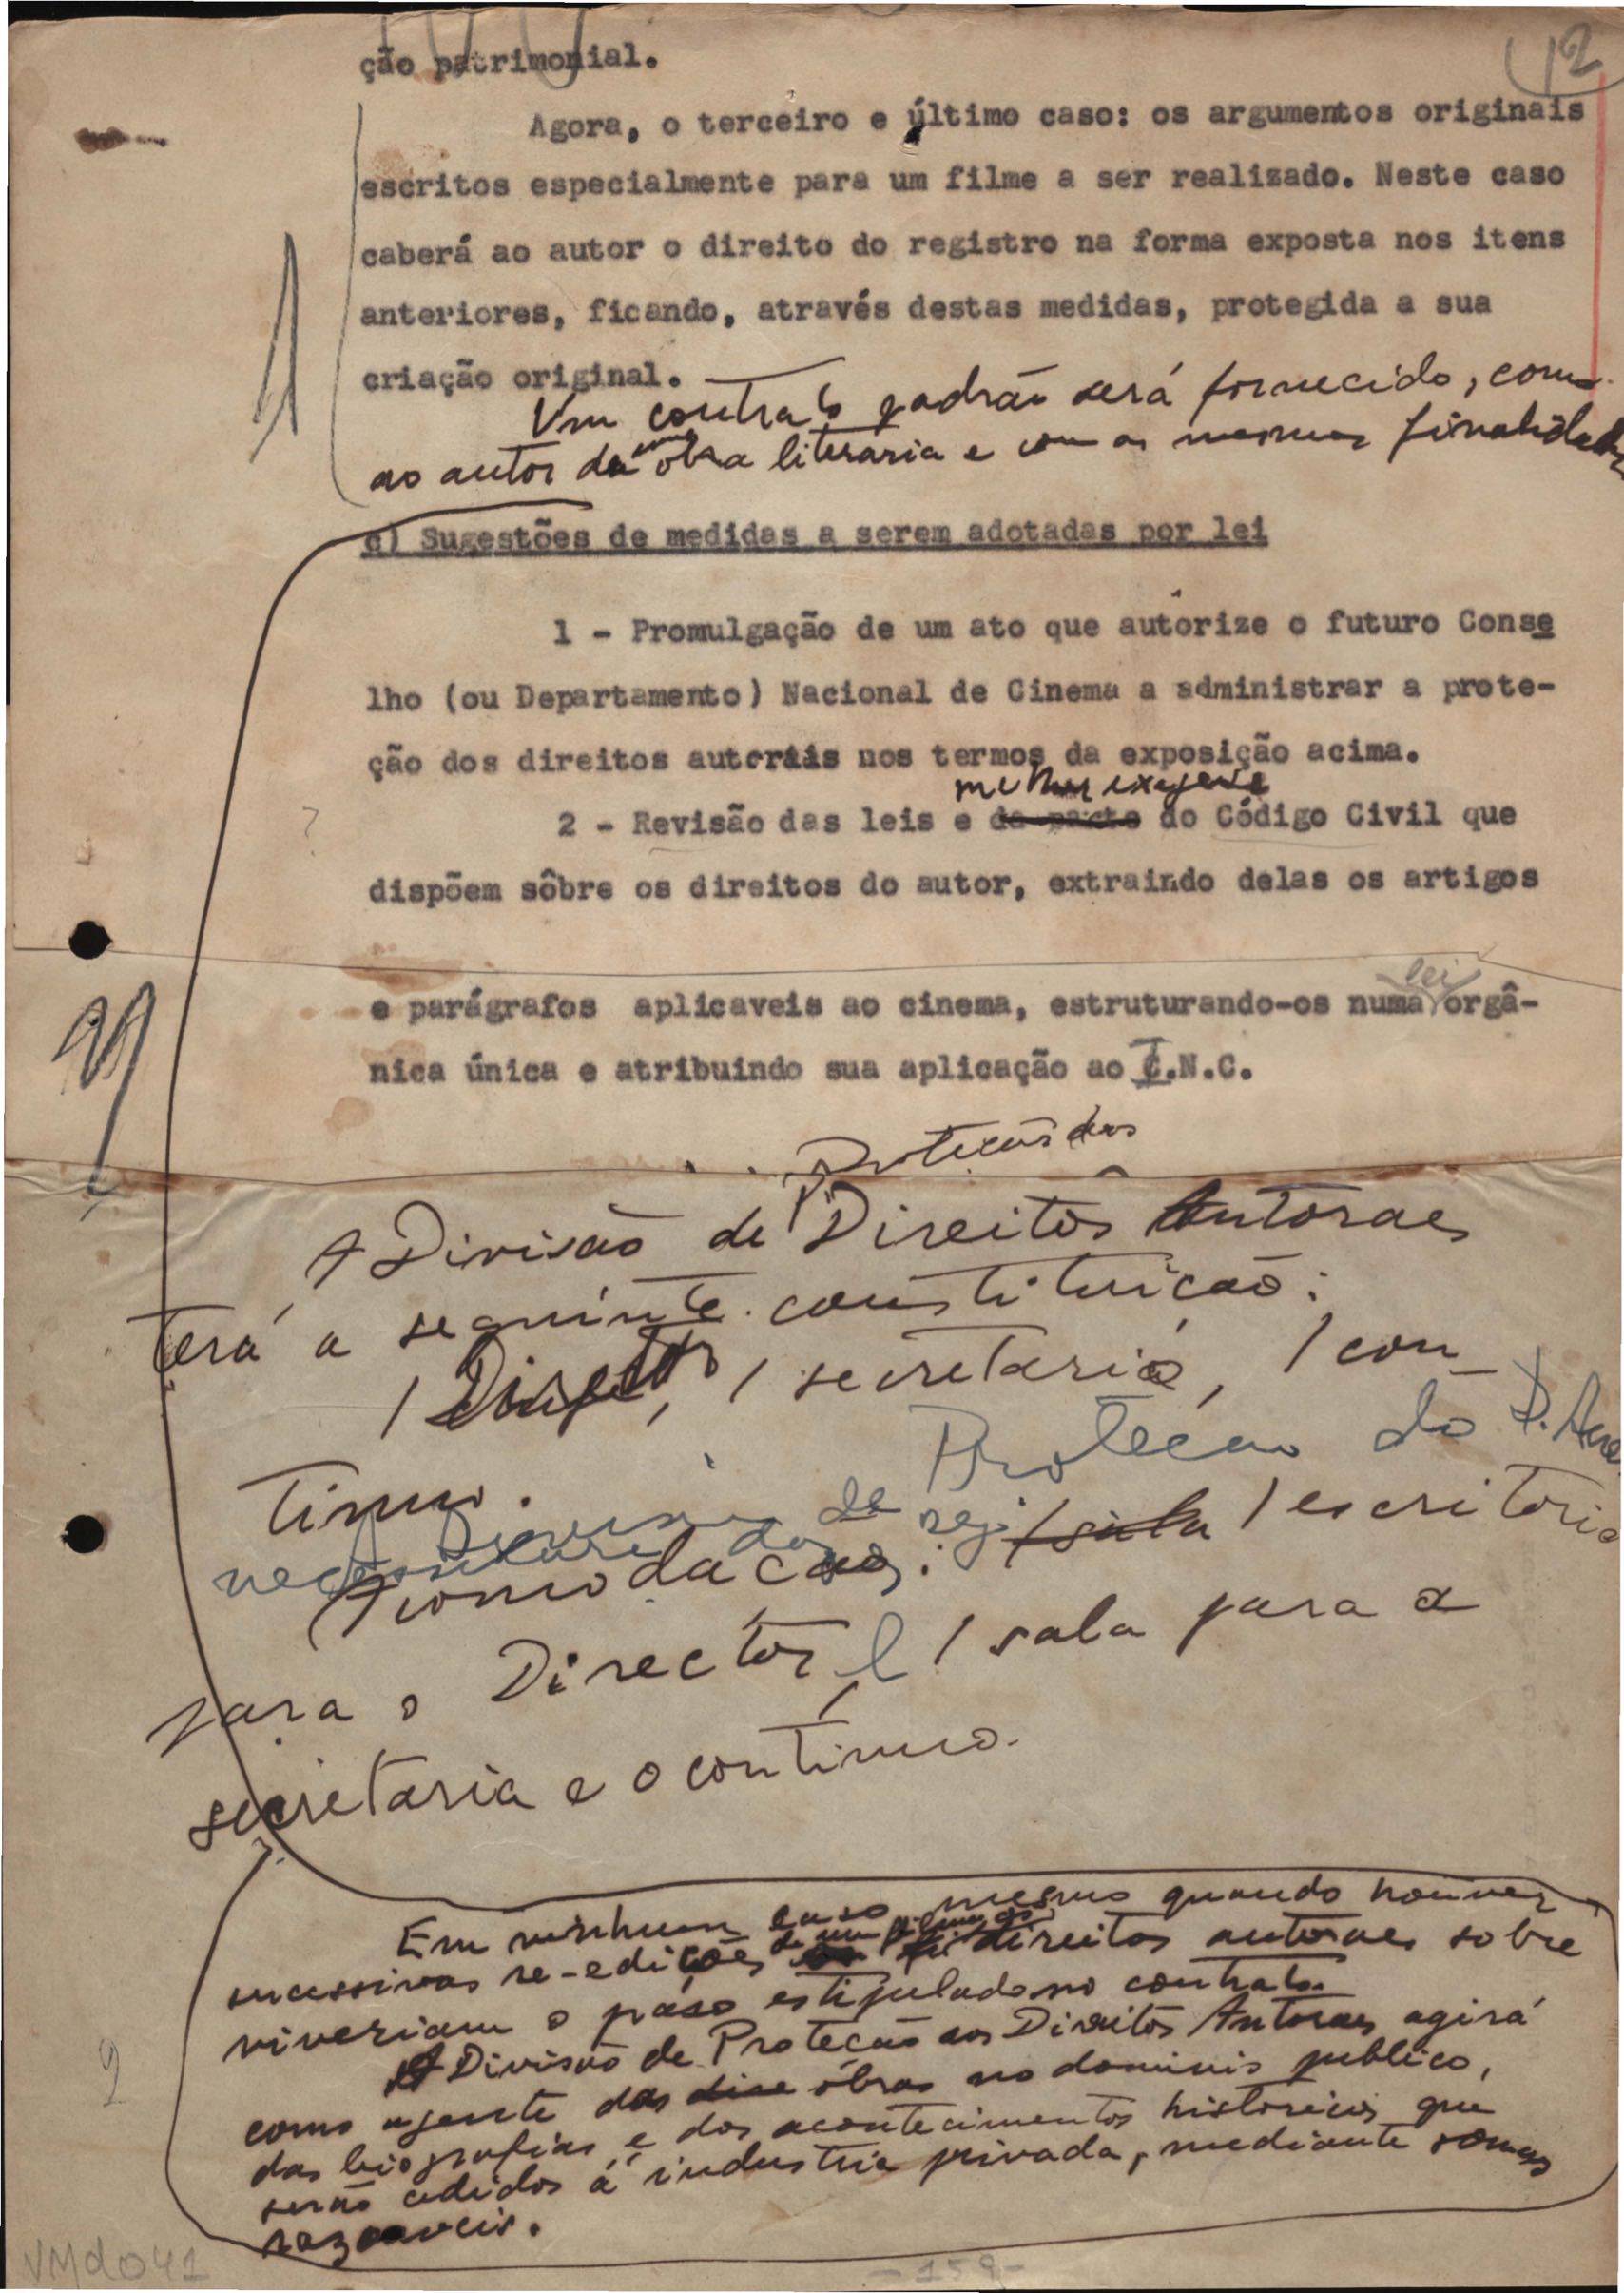 12
ção patrimonial.
Agora, o terceiro e último caso: os argumentos originais
escritos especialmente para um filme a ser realizado. Neste caso
caberá ao autor o direito do registro na forma exposta nos itens
anteriores, ficando, através destas medidas, protegida a sua
criação original.
Um contrato padrão será fornecido, como
ao autor da obra literaria e com as mesmas finalidades
c) Sugestões de medidas a serem adotadas por lei
1 - Promulgação de um ato que autorize o futuro Conse
lho (ou Departamento) Nacional de Cinema a administrar a prote-
ção dos direitos autorais nos termos da exposição acima.
2 - Revisão das leis e da parte do Código Civil que
dispõem sôbre os direitos do autor, extraindo delas os artigos
lei
e parágrafos aplicaveis ao cinema, estruturando-os numa orgâ-
nica única e atribuindo sua aplicação ao I.N.C.
Proteção dos
A Divisão de Direitos Autoraes
terá a seguinte constituição:
1 Diretor, 1 secretaria, 1 con-
tinuo.
Proteção do
necessitará de
Acomodações: 1 sala 1 escritorio
para o Director e 1 sala para a
secretaria e o continuo.
Em ninhum caso mesmo quando houver
sucessivas re-edições de um filme os direitos autoraes sobre
viveriam o praso estipulado no contrato.
A Divisão de Proteção aos Direitos Autoraes agirá
como agente das obras no dominio publico,
das biografias e dos acontecimentos historicos que
serão cedidos á industria privada, mediante somas
razoaveis.
VMd041
-159-